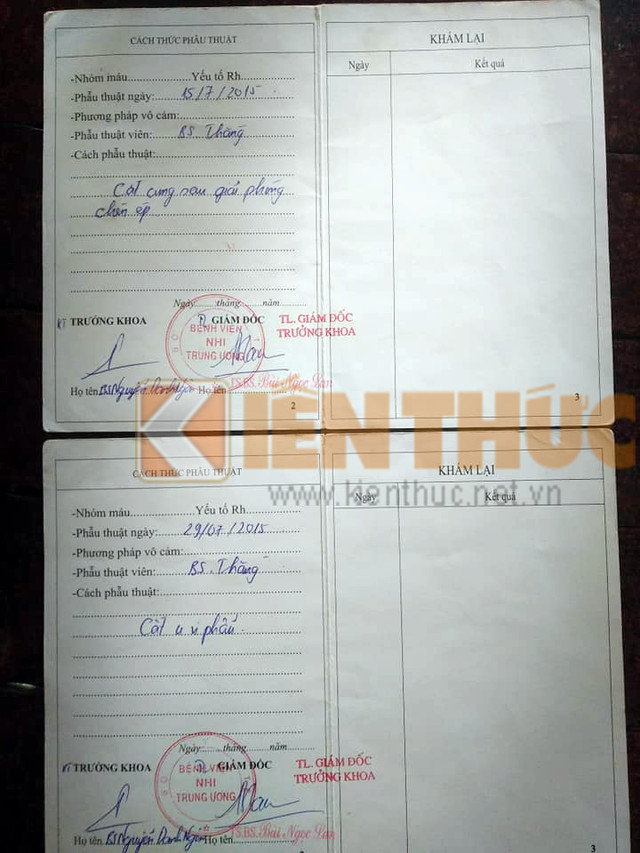 CÁCH THỨC PHẪU THUẬT
-Nhóm máu..........Yếu tố Rh..........
-Phẫu thuật ngày: 15/7/2015
-Phương pháp vô cảm:..........
-Phẫu thuật viên: BS Thắng
-Cách phẫu thuật:..........
Cắt cung sau giải phóng
chèn ép
Ngày.......tháng.......năm.......
TRƯỞNG KHOA
GIÁM ĐỐC
TL. GIÁM ĐỐC
TRƯỞNG KHOA
BỆNH VIỆN
NHI
TRUNG ƯƠNG
Họ tên: BS Nguyễn Danh Họ tên: TS.BS. Bùi Ngọc Lan
2
KHÁM LẠI
Ngày
Kết quả
3
KIẾN THỨC
www.kienthuc.net.vn
CÁCH THỨC PHẪU THUẬT
-Nhóm máu..........Yếu tố Rh..........
-Phẫu thuật ngày: 29/07/2015
-Phương pháp vô cảm:..........
-Phẫu thuật viên: BS. Thắng
-Cách phẫu thuật:..........
Cắt u vi phẫu
Ngày.......tháng.......năm.......
TRƯỞNG KHOA
GIÁM ĐỐC
TL. GIÁM ĐỐC
TRƯỞNG KHOA
BỆNH VIỆN
NHI
TRUNG ƯƠNG
Họ tên: BS Nguyễn Danh Họ tên: TS.BS. Bùi Ngọc Lan
2
KHÁM LẠI
Ngày
Kết quả
3